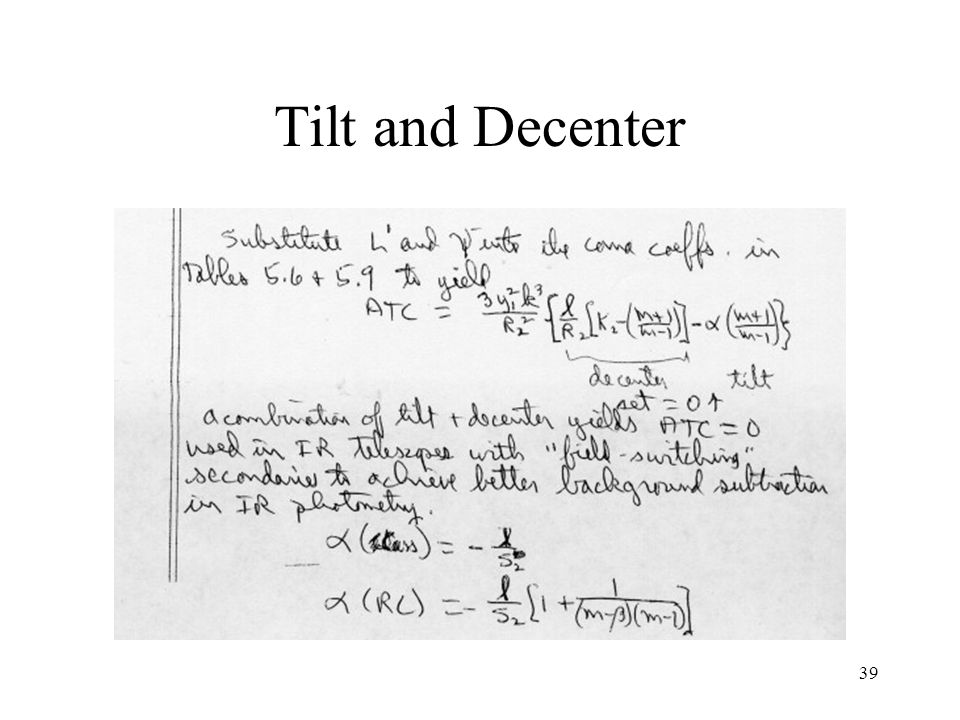 Tilt and Decenter
Substitute L' and ψ into the coma coeffs. in
Tables 5.6 + 5.9 to yield
ATC = 3y₁²k³/R₂² {ℓ/R₂ [K₂-(m+1/m-1)] - α (m+1/m-1)}
decenter tilt
set = 0 ↑
a combination of tilt + decenter yields ATC = 0
used in IR telescopes with "field-switching"
secondaries to achieve better background subtraction
in IR photometry.
α (class) = - ℓ/S₂
α (RC) = - ℓ/S₂ [1 + 1/(m-β)(m-1)]
39